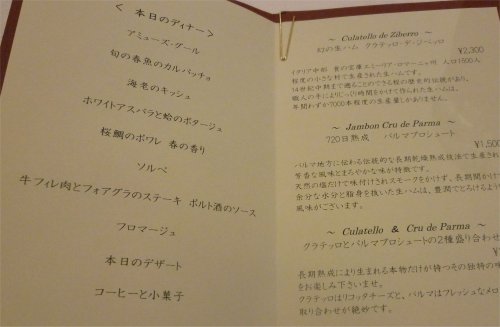 ＜ 本日のディナー＞
アミューズ・グール
旬の春魚のカルパッチョ
海老のキッシュ
ホワイトアスパラと蛤のポタージュ
桜鯛のポワレ 春の香り
ソルベ
牛フィレ肉とフォアグラのステーキ ポルト酒のソース
フロマージュ
本日のデザート
コーヒーと小菓子
～ Culatello de Ziberro ～
幻の生ハム クラテッロ・デ・ジベッロ
¥2,300
イタリア中部 食の宝庫エミーリア・ロマーニャ州 人口1500人
程度の小さな村で生産された生ハムです。
14世紀中期まで遡ることのできる程の歴史的伝統があり、
職人の手によりじっくり時間をかけて作られた生ハムは、
年間わずか7000本程度の生産量しかありません。
～ Jambon Cru de Parma ～
720日熟成 パルマプロシュート
¥1,500
パルマ地方に伝わる伝統的な長期乾燥熟成技法で生産され
芳香な風味とまろやかな味が特徴です。
天然の塩だけで味付けされスモークをかけず、長期間かけて
余分な水分と脂身を抜いた生ハムは、豊潤でとろけるよう
風味がございます。
～ Culatello & Cru de Parma ～
クラテッロとパルマプロシュートの2種盛り合わせ
長期熟成により生まれる本物だけが持つその独特の味
をお楽しみ下さいませ。
クラテッロはリコッタチーズと、パルマはフレッシュなメロ
取り合わせが絶妙です。